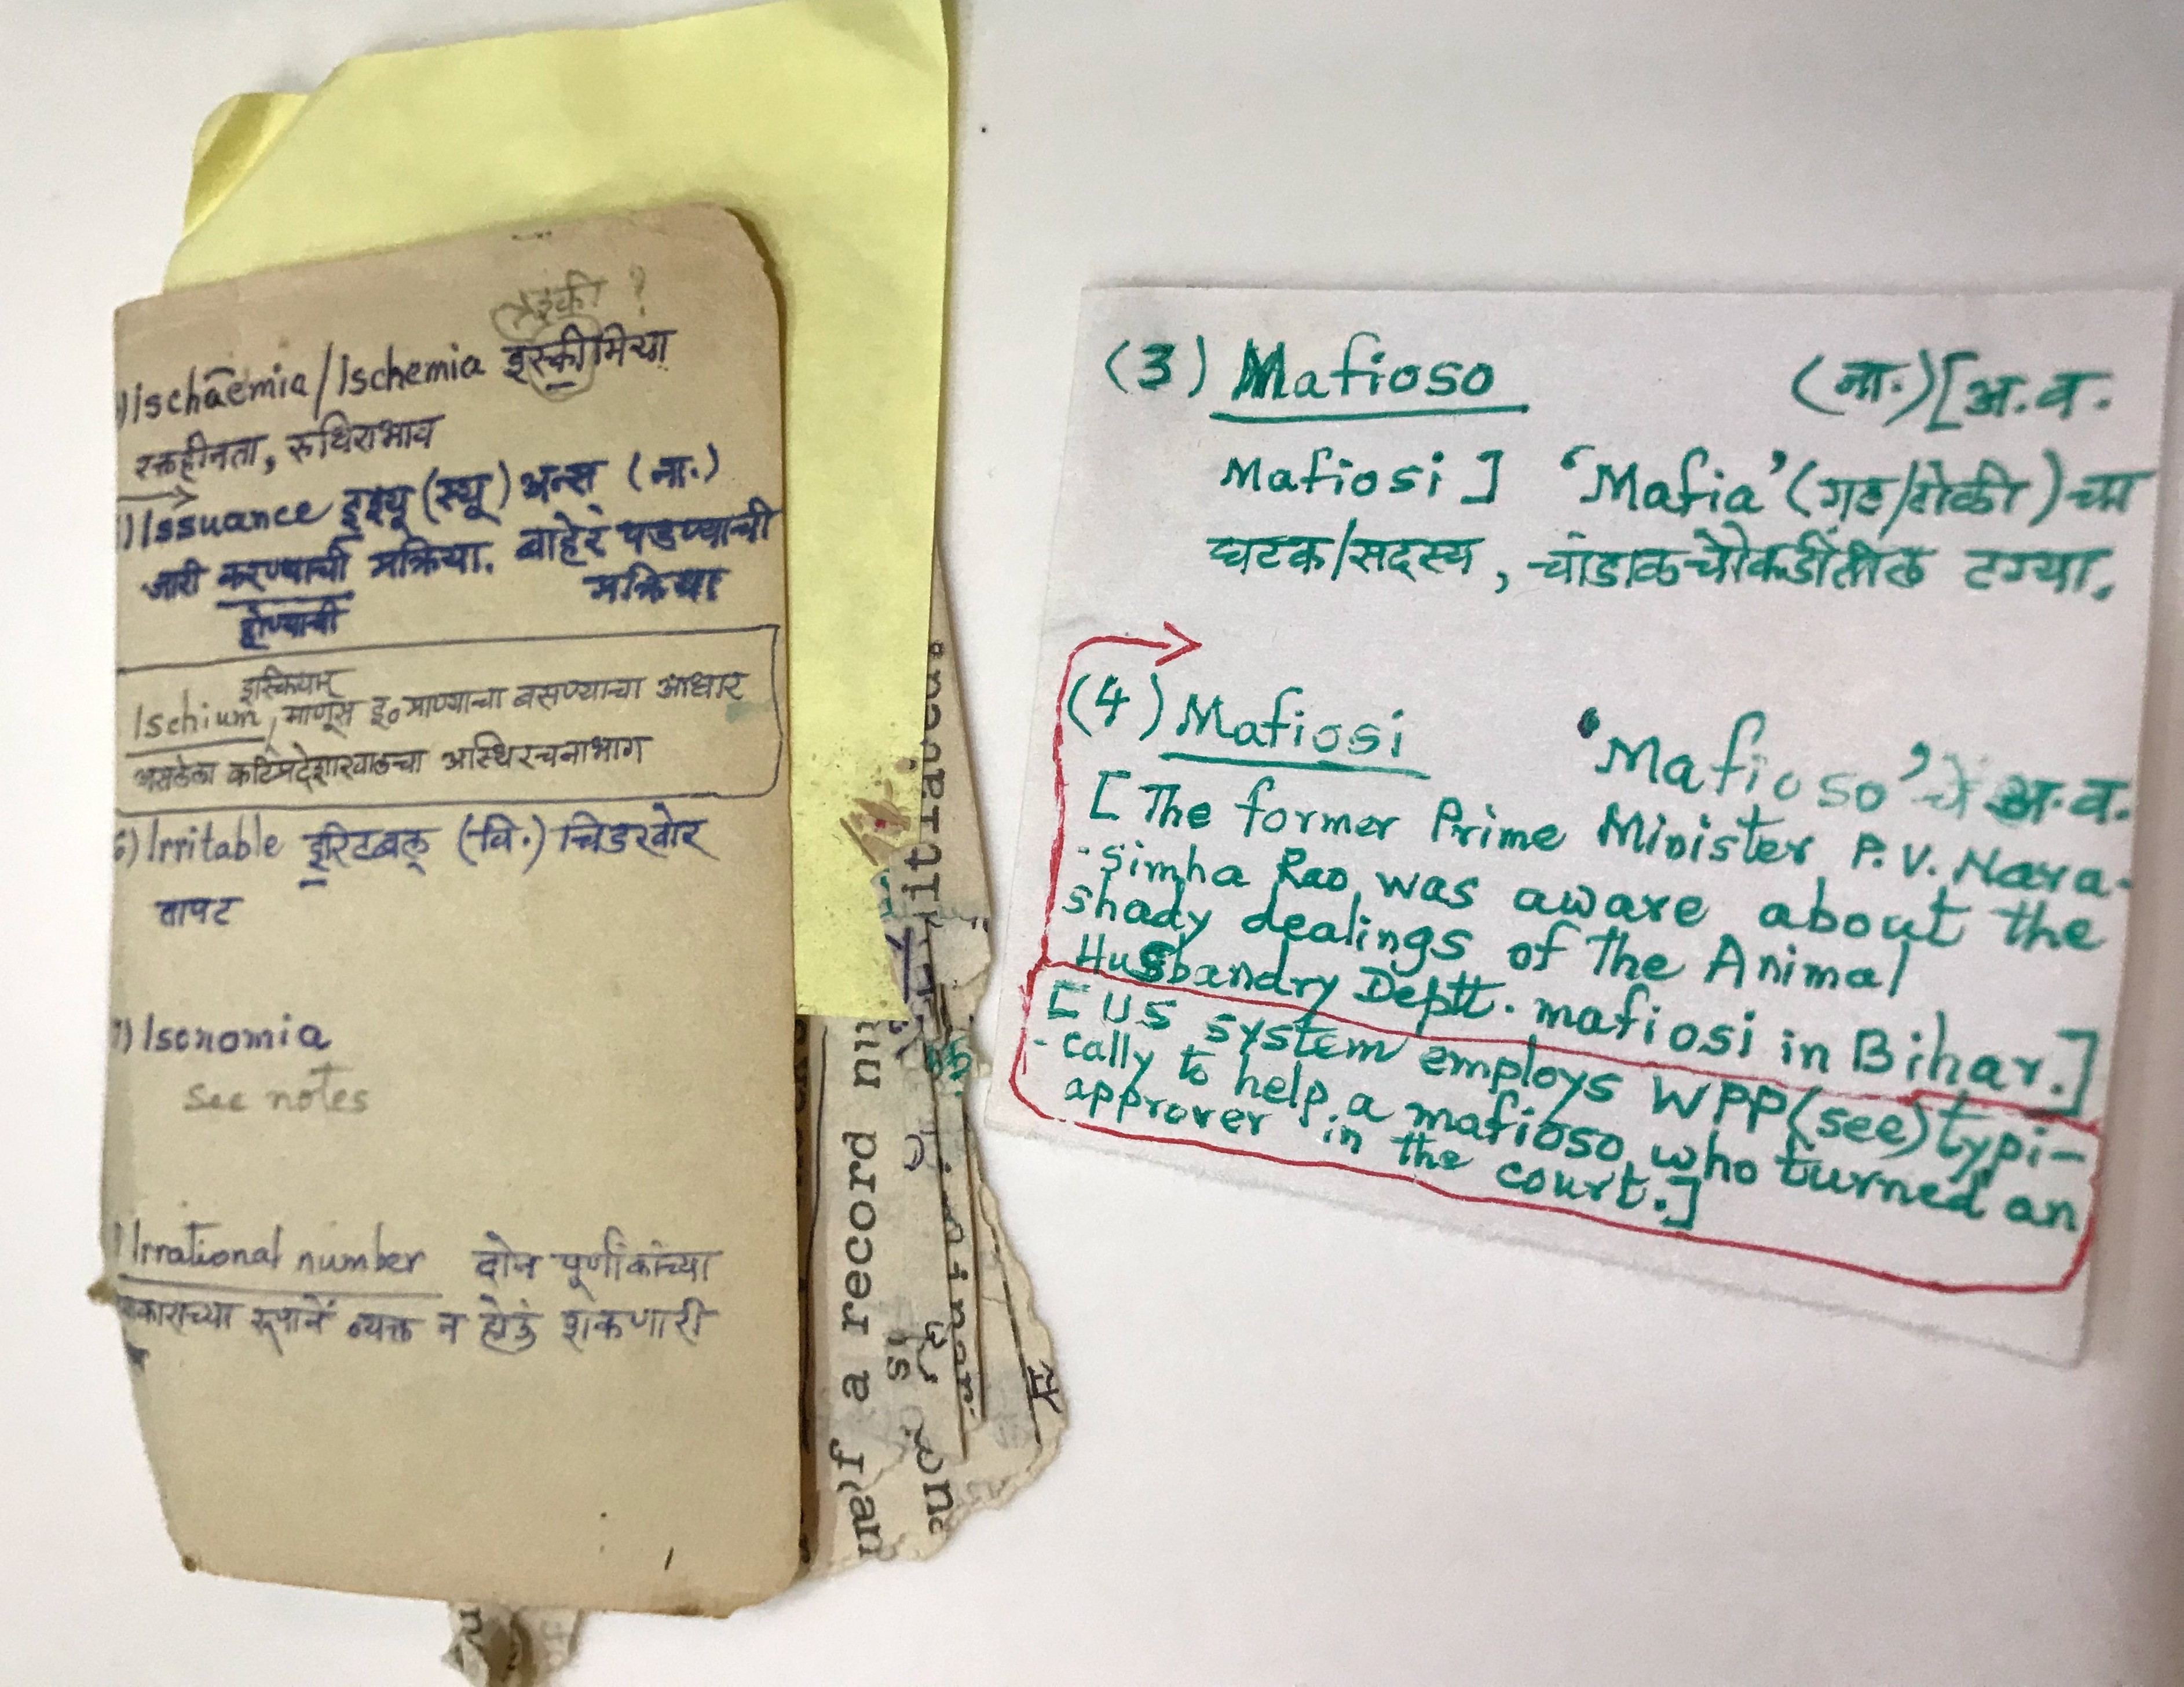 इस्की ?
Ischaemia/Ischemia इस्कीमिया
रक्तहीनता, रुधिराभाव
Issuance इश्यू (स्यू) अन्स (ना.)
जारी करण्याची प्रक्रिया. बाहेर पडण्याची
होण्याची प्रक्रिया
इस्कियम्
Ischium, माणूस इ० प्राण्याचा बसण्याचा आधार
असलेला कटिप्रदेशाखालचा अस्थिरचनाभाग
6) Irritable इरिटबल् (वि.) चिडखोर
तापट
7) Isonomia
see notes
Irrational number दोन पूर्णांकांच्या
रूपाने व्यक्त न होऊं शकणारी
maf a record
(3) Mafioso (ना.) [अ.व.
Mafiosi] 'Mafia' (गट/टोळी) चा
घटक/सदस्य, चांडाळचौकडींतील टग्या.
(4) Mafiosi 'Mafioso' चे अ.व.
[The former Prime Minister P.V. Nara-
-simha Rao was aware about the
shady dealings of the Animal
Husbandry Deptt. mafiosi in Bihar.]
[US system employs WPP (see) typi-
-cally to help a mafioso who turned an
approver in the court.]